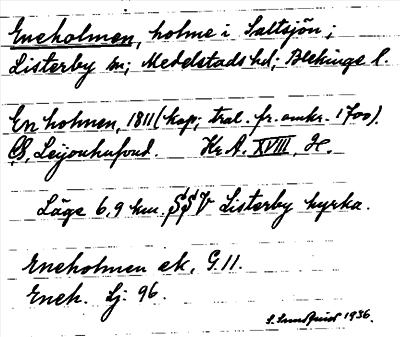 Eneholmen, holme i Saltsjön;
Listerby sn; Medelstads hd; Blekinge l.
En holmen, 1811 (kop; trol. fr. omkr. 1700).
CS, Leijonhufvud. Kr. A. XVIII, H.
Läge 6,9 km. SSV Listerby kyrka.
Eneholmen ek, G.11.
Eneh. Lj 96.
S. Lundquist 1936.